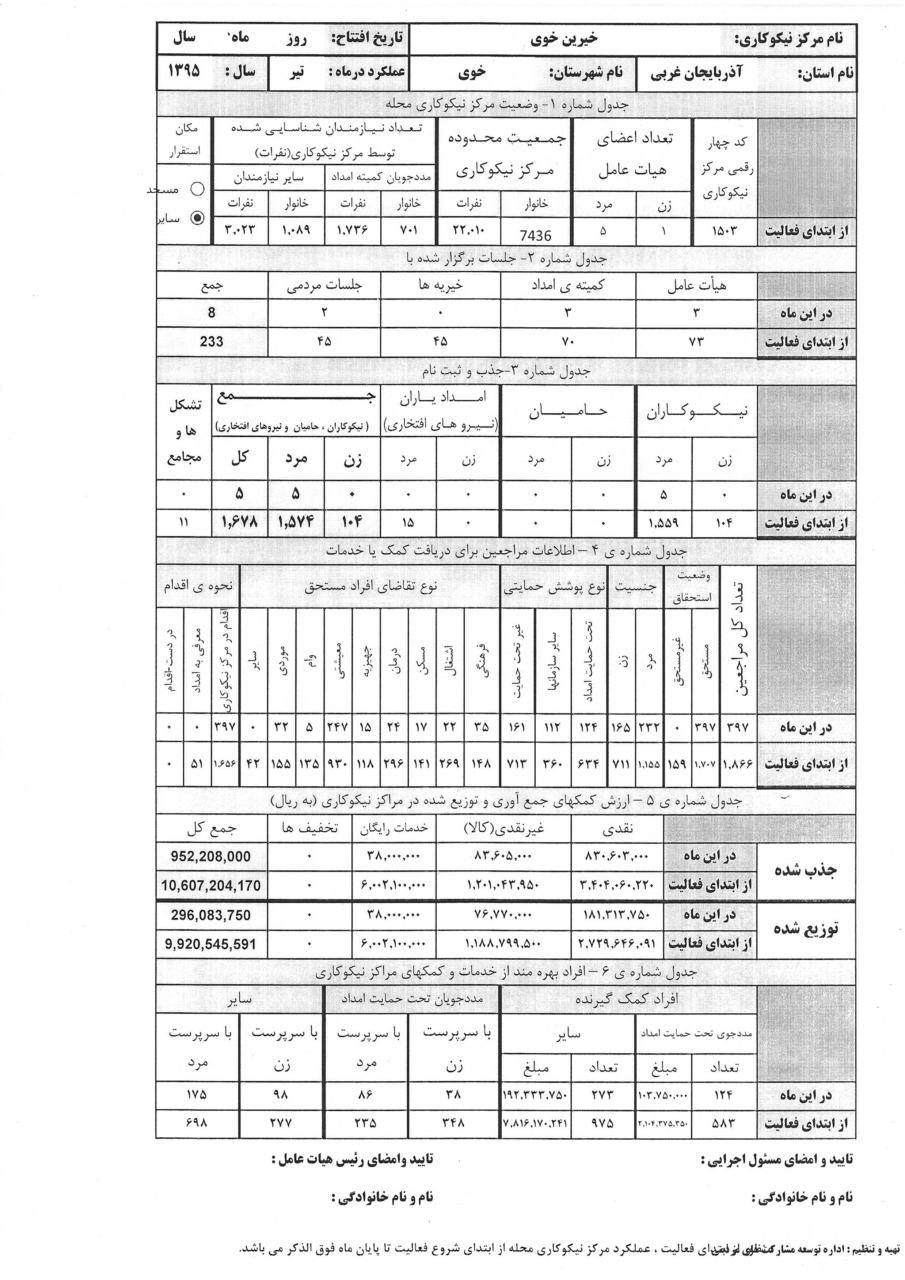 نام مرکز نیکوکاری: خیرین خوی تاریخ افتتاح: روز ماه سال
نام استان: آذربایجان غربی نام شهرستان: خوی عملکرد درماه : تیر سال : ۱۳۹۵
جدول شماره ۱- وضعیت مرکز نیکوکاری محله
کد چهار رقمی مرکز نیکوکاری تعداد اعضای هیات عامل جمعیت محدوده مرکز نیکوکاری تعداد نیازمندان شناسایی شده توسط مرکز نیکوکاری(نفرات) مکان استقرار
مددجویان کمیته امداد سایر نیازمندان مسجد
زن مرد خانوار نفرات خانوار نفرات خانوار نفرات سایر
از ابتدای فعالیت ۱۵۰۳ ۱ ۵ 7436 ۲۲.۰۱۰ ۷۰۱ ۱.۷۳۶ ۱.۰۸۹ ۳.۰۲۳
جدول شماره ۲- جلسات برگزار شده با
هیأت عامل کمیته ی امداد خیریه ها جلسات مردمی جمع
در این ماه ۳ ۳ ۰ ۲ 8
از ابتدای فعالیت ۷۳ ۷۰ ۴۵ ۴۵ 233
جدول شماره ۳-جذب و ثبت نام
نیکوکاران حامیان امدادیاران (نیروهای افتخاری) جمع (نیکوکاران ، حامیان و نیروهای افتخاری) تشکل ها و مجامع
زن مرد زن مرد زن مرد زن مرد کل
در این ماه ۰ ۵ ۰ ۰ ۰ ۰ ۰ ۵ ۵ ۰
از ابتدای فعالیت ۱۰۴ ۱.۵۵۹ ۰ ۰ ۰ ۱۵ ۱۰۴ ۱,۵۷۴ ۱,۶۷۸ ۱۱
جدول شماره ی ۴ – اطلاعات مراجعین برای دریافت کمک یا خدمات
تعداد کل مراجعین وضعیت استحقاق جنسیت نوع پوشش حمایتی نوع تقاضای افراد مستحق نحوه ی اقدام
مستحق غیرمستحق مرد زن تحت حمایت امداد سایر سازمانها غیر تحت حمایت فرهنگی اشتغال مسکن درمان جهیزیه معیشتی وام موردی سایر اقدام در مرکز نیکوکاری معرفی به امداد در دست-اقدام
در این ماه ۳۹۷ ۳۹۷ ۰ ۲۳۲ ۱۶۵ ۱۲۴ ۱۱۲ ۱۶۱ ۳۵ ۲۲ ۱۷ ۲۴ ۱۵ ۲۴۷ ۵ ۳۲ ۰ ۳۹۷ ۰ ۰
از ابتدای فعالیت ۱,۸۶۶ ۱.۷۰۷ ۱۵۹ ۱.۱۵۵ ۷۱۱ ۶۳۴ ۳۶۰ ۷۱۳ ۱۴۸ ۲۶۹ ۱۴۱ ۲۹۶ ۱۱۸ ۹۳۰ ۱۳۵ ۱۵۵ ۴۲ ۱.۶۵۶ ۵۱ ۰
جدول شماره ی ۵ – ارزش کمکهای جمع آوری و توزیع شده در مراکز نیکوکاری (به ریال)
نقدی غیرنقدی(کالا) خدمات رایگان تخفیف ها جمع کل
جذب شده در این ماه ۸۳۰.۶۰۳.۰۰۰ ۸۳.۶۰۵.۰۰۰ ۳۸.۰۰۰.۰۰۰ ۰ 952,208,000
از ابتدای فعالیت ۳.۴۰۴.۰۶۰.۲۲۰ ۱.۲۰۱.۰۴۳.۹۵۰ ۶.۰۰۲.۱۰۰.۰۰۰ ۰ 10,607,204,170
توزیع شده در این ماه ۱۸۱.۳۱۳.۷۵۰ ۷۶.۷۷۰.۰۰۰ ۳۸.۰۰۰.۰۰۰ ۰ 296,083,750
از ابتدای فعالیت ۲.۷۲۹.۶۴۶.۰۹۱ ۱.۱۸۸.۷۹۹.۵۰۰ ۶.۰۰۲.۱۰۰.۰۰۰ ۰ 9,920,545,591
جدول شماره ی ۶ – افراد بهره مند از خدمات و کمکهای مراکز نیکوکاری
افراد کمک گیرنده مددجویان تحت حمایت امداد سایر
مددجوی تحت حمایت امداد سایر با سرپرست زن با سرپرست مرد با سرپرست زن با سرپرست مرد
تعداد مبلغ تعداد مبلغ
در این ماه ۱۲۴ ۱۰۳.۷۵۰.۰۰۰ ۲۷۳ ۱۹۲.۳۳۳.۷۵۰ ۳۸ ۸۶ ۹۸ ۱۷۵
از ابتدای فعالیت ۵۸۳ ۲.۱۰۴.۳۷۵.۳۵۰ ۹۷۵ ۷.۸۱۶.۱۷۰.۲۴۱ ۳۴۸ ۲۳۵ ۲۷۷ ۶۹۸
تایید و امضای مسئول اجرایی : تایید وامضای رئیس هیات عامل :
نام و نام خانوادگی : نام و نام خانوادگی :
تهیه و تنظیم : اداره توسعه مشارکت های مردمی منظور از ابتدای فعالیت ، عملکرد مرکز نیکوکاری محله از ابتدای شروع فعالیت تا پایان ماه فوق الذکر می باشد.